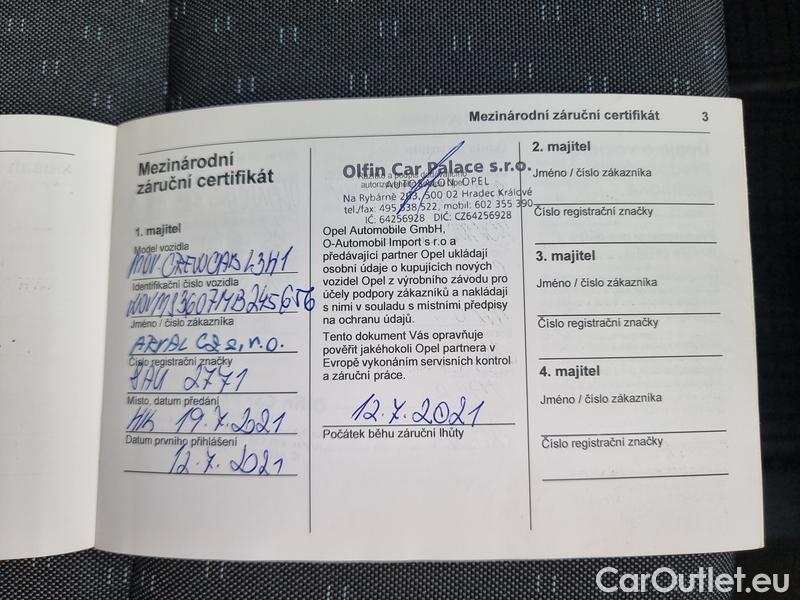 Mezinárodní záruční certifikát 3
Mezinárodní
záruční certifikát
1. majitel
Model vozidla
MOV CREWCAB L3H1
Identifikační číslo vozidla
W0VMS3607MB245656
Jméno / číslo zákazníka
ARVAL CZ s.r.o.
Číslo registrační značky
2771
Místo, datum předání
HK 19.7.2021
Datum prvního přihlášení
12.7.2021
Olfin Car Palace s.r.o.
AUTOSALON OPEL
Na Rybárně 293, 500 02 Hradec Králové
tel./fax: 495 538/522, mobil: 602 355 390
IČ: 64256928 DIČ: CZ64256928
Opel Automobile GmbH,
O-Automobil Import s r.o a
předávající partner Opel ukládají
osobní údaje o kupujících nových
vozidel Opel z výrobního závodu pro
účely podpory zákazníků a nakládají
s nimi v souladu s místními předpisy
na ochranu údajů.
Tento dokument Vás opravňuje
pověřit jakéhokoli Opel partnera v
Evropě vykonáním servisních kontrol
a záruční práce.
12.7.2021
Počátek běhu záruční lhůty
2. majitel
Jméno / číslo zákazníka
Číslo registrační značky
3. majitel
Jméno / číslo zákazníka
Číslo registrační značky
4. majitel
Jméno / číslo zákazníka
Číslo registrační značky
CarOutlet.eu